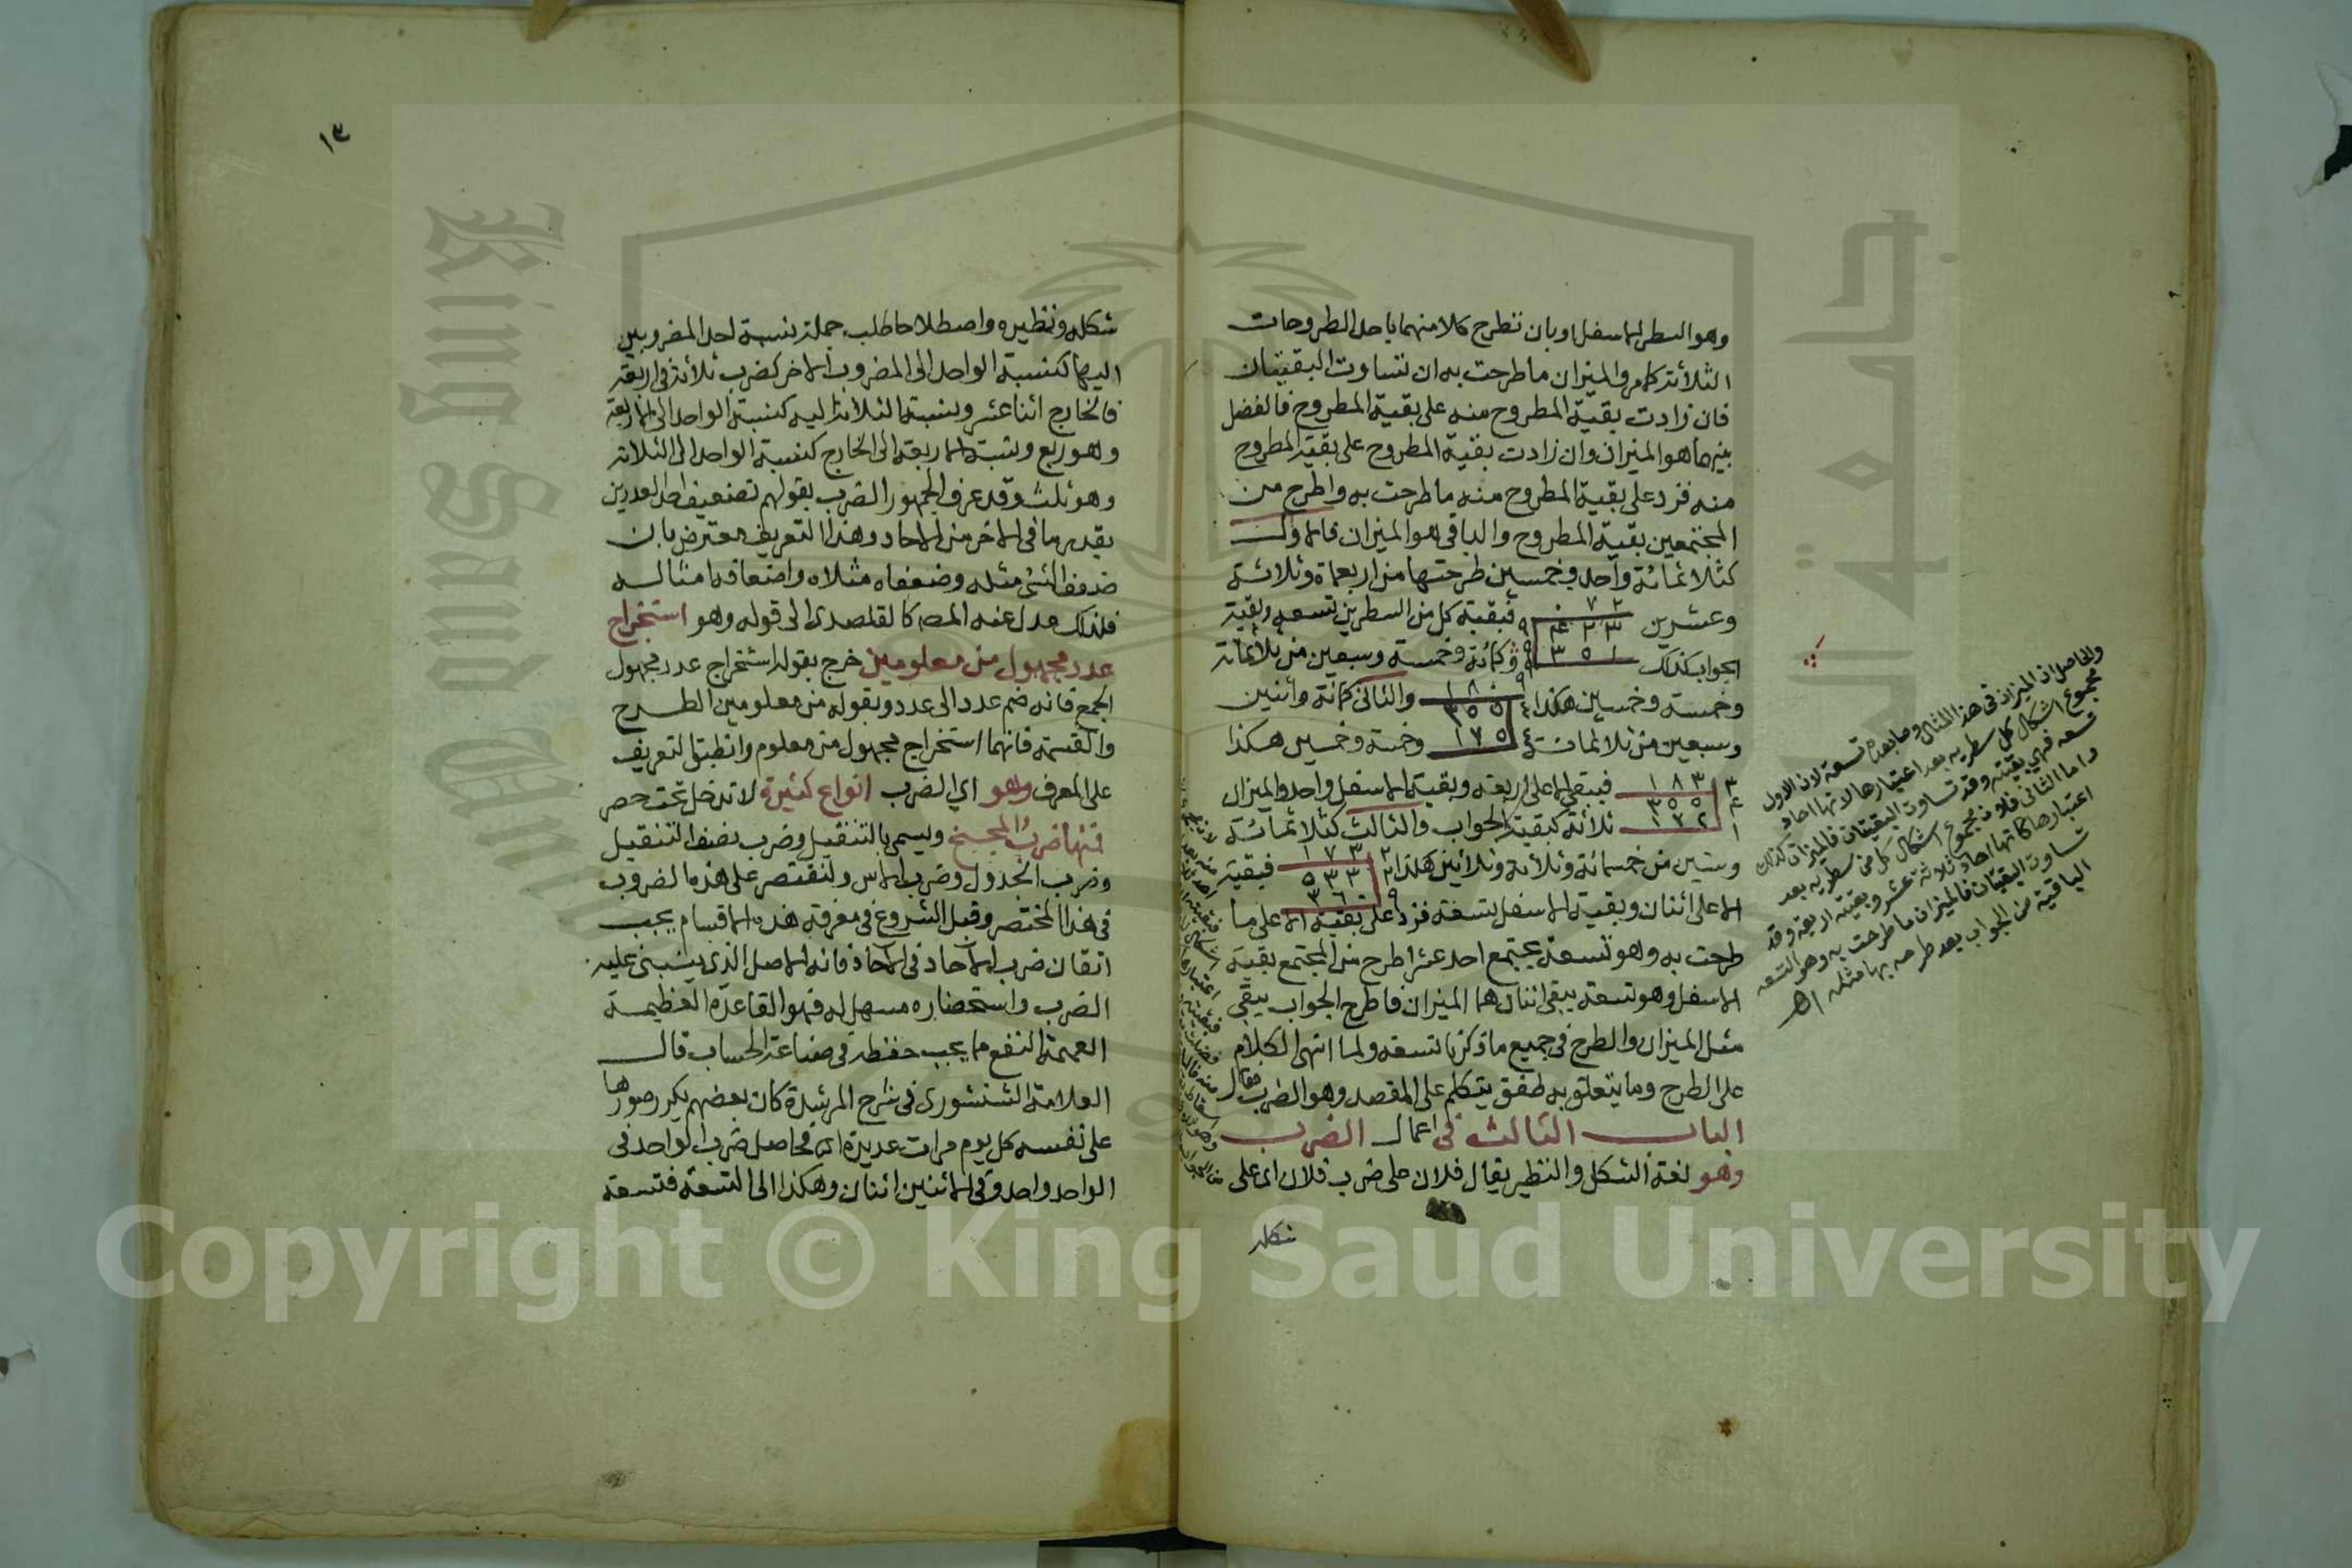 وهو السطر الاسفل او بان تطرح كلا منهما باحد الطروحات
الثلاثة كما مر والميزان ما طرحت به ان تساوت البقيتان
فان زادت بقية المطروح منه على بقية المطروح فالفضل
بينهما هو الميزان وان زادت بقية المطروح على بقية المطروح
منه فزد على بقية المطروح منه ما طرحت به واطرح من
المجتمعين بقية المطروح والباقى هو الميزان فالاول
كثلاثمائة واحد وخمسين طرحتها من اربعماة وثلاثة
وعشرين
٠ ٧ ٢
٤ ٢ ٣
٣ ٥ ١
٩
٩
فبقية كل من السطرين تسعه وبقية
الجواب كذلك
وكمائة وخمسه وسبعين من ثلاثمائة
وخمسه وخمسين هكذا
١ ٨ ٠
٣ ٥ ٥
١ ٧ ٥
٤
٤
٩
والثانى كمائة واثنين
وسبعين من ثلاثمائة
وخمسة وخمسين هكذا
١ ٨ ٣
٣ ٥ ٥
١ ٧ ٢
٣
٤
١
فيبقى الاعلى اربعه وبقية الاسفل واحد والميزان
ثلاثة كبقية الجواب والثالث كثلاثمائة
وستين من خمسمائة وثلاثة وثلاثين هكذا
١ ٧ ٣
٥ ٣ ٣
٣ ٦ ٠
٢
٢
٩
فبقية
الاعلى اثنان وبقية الاسفل تسعة فزد على بقية الاعلى ما
طرحت به وهو تسعة يجتمع احد عشر اطرح من المجتمع بقية
الاسفل وهو تسعة يبقى اثنان هما الميزان فاطرح الجواب يبقى
مثل الميزان والطرح فى جميع ما ذكر بالتسعه ولما انتهى الكلام
على الطرح وما يتعلق به طفق يتكلم على المقصد وهو الضرب فقال
الباب الثالث فى اعمال الضرب
وهو لغة الشكل والنظير يقال فلان على ضرب فلان اى على
شكله
والحاصل ان الميزان فى هذا المثال وما بعده تسعة لان الاول
مجموع اشكال كل سطريه بعد اعتبارها لانها احاد
تسعه فهى بقيته وقد تساوت البقيتان فالميزان كذلك
واما الثانى فلان مجموع اشكال كل من سطريه بعد
اعتبارها كانها احاد ثلاثة عشر وبقيته اربعه وقد
تساوت البقيتان فالميزان ما طرحت به وهو التسعه
الباقية من الجواب بعد طرحه بها مثله اهـ
١٣
شكله ونظيره واصطلاحا طلب جملة نسبة احد المضروبين
اليها كنسبة الواحد الى المضروب الاخر كضرب ثلاثة فى اربعة
فالخارج اثنا عشر ونسبة الثلاثة اليه كنسبة الواحد الى الاربعة
وهو ربع ونسبة الاربعة الى الخارج كنسبة الواحد الى الثلاثة
وهو ثلث وقد عرف الجمهور الضرب بقولهم تضعيف احد العددين
بقدر ما فى الاخر من الاحاد وهذا التعريف معترض بان
ضعف الشئ مثله وضعفاه مثلاه واضعافه امثاله
فلذلك عدل عنه المصـ كالقلصدى الى قوله وهو استخراج
عدد مجهول من معلومين خرج بقوله استخراج عدد مجهول
الجمع فانه ضم عدد الى عدد وبقوله من معلومين الطرح
والقسمة فانهما استخراج مجهول من معلوم وانطبق التعريف
على المعرف وهو اي الضرب انواع كثيرة لا تدخل تحت حصر
فمنها ضرب المجنح ويسمى بالتنقيل وضرب نصف التنقيل
وضرب الجدول وضرب الاس ولنقتصر على هذه الضروب
فى هذا المختصر وقبل الشروع فى معرفة هذه الاقسام يجب
اتقان ضرب الاحاد فى الاحاد فانه الاصل الذى ينبنى عليه
الضرب واستحضاره مسهل له فهو القاعدة العظيمة
العميمة النفع مما يجب حفظه فى صناعة الحساب قال
العلامة الشنشورى فى شرح المرشدة كان بعضهم يكرر صورها
على نفسه كل يوم مرات عديدة اى فحاصل ضرب الواحد فى
الواحد واحد وفى الاثنين اثنان وهكذا الى التسعة فتسعة
King Saud University
جامعة
Copyright © King Saud University